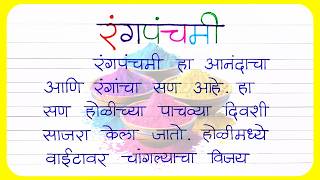 रंगपंचमी
रंगपंचमी हा आनंदाचा
आणि रंगांचा सण आहे. हा
सण होळीच्या पाचव्या दिवशी
साजरा केला जातो. होळीमध्ये
वाईटावर चांगल्याचा विजय